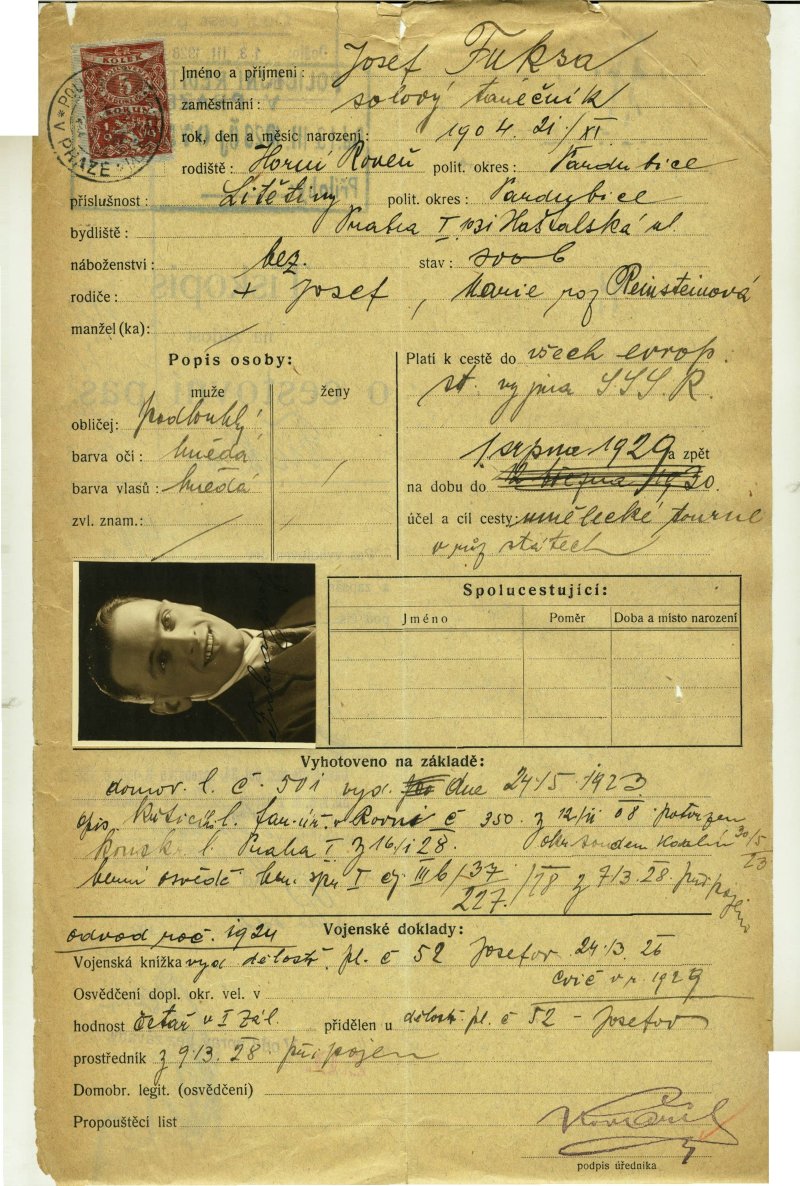 Jméno a příjmení: Josef Fuksa
zaměstnání: solový tanečník
rok, den a měsíc narození: 1904. 21/XI
rodiště: Horní Roveň polit. okres: Pardubice
příslušnost: Litětiny polit. okres: Pardubice
bydliště: Praha I 1031 Haštalská ul
náboženství: bez. stav: svob
rodiče: + Josef, Marie roz Reinsteinová
manžel(ka):
Popis osoby:
muže ženy
obličej: podlouhlý
barva očí: hnědá
barva vlasů: hnědá
zvl. znam.:
Platí k cestě do všech evrop.
st. vyjma SSSR.
1. srpna 1929 a zpět
na dobu do 12 března 1930.
účel a cíl cesty: umělecké turné
v růz státech
Spolucestující:
Jméno Poměr Doba a místo narození
Vyhotoveno na základě:
domov. l. č. 501 vyd. dne 24/5. 1923
opis křticí l. far. úř. v Rovni č 350. z 12/II 08. potvrzen
konsk. l. Praha I z 16/I 28. okr soudem 30/5 23
berní osvědč ber. spr I čj III6/37/227./28 z 7/3. 28. připojeno
odvod roč. 1924 Vojenské doklady:
Vojenská knížka vyd dělostř. pl. č 52 Josefov 24/3. 26
cvič v r. 1929
Osvědčení dopl. okr. vel. v
hodnost četař v I zál. přidělen u dělostř. pl. č 52 – Josefov
prostředník z 9/3. 28. připojen
Domobr. legit. (osvědčení)
Propouštěcí list
podpis úředníka